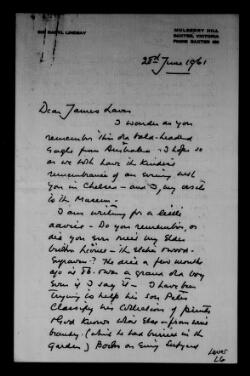 SIR DARYL LINDSAY
MULBERRY HILL
BAXTER, VICTORIA
PHONE BAXTER
28th June 1961
Dear James Laver
I wonder do you
remember this old bald-headed
from Australia - I hope so
as we both have the kindest
remembrance of an evening with
you in Chelsea - and I, my visit
to the Museum -
I am writing for a little
advice - Do you remember, or
did you ever meet my elder
brother Lionel - the etcher & wood-
Engraver? He died a few months
ago at 86. was a grand old boy
Even if I say it - I have been
trying to help his son Peter
Classify his Collections of prints
& God Knows what Else - from wine &
brandy, (which he had buried in the
Garden) Books on Every
Laver